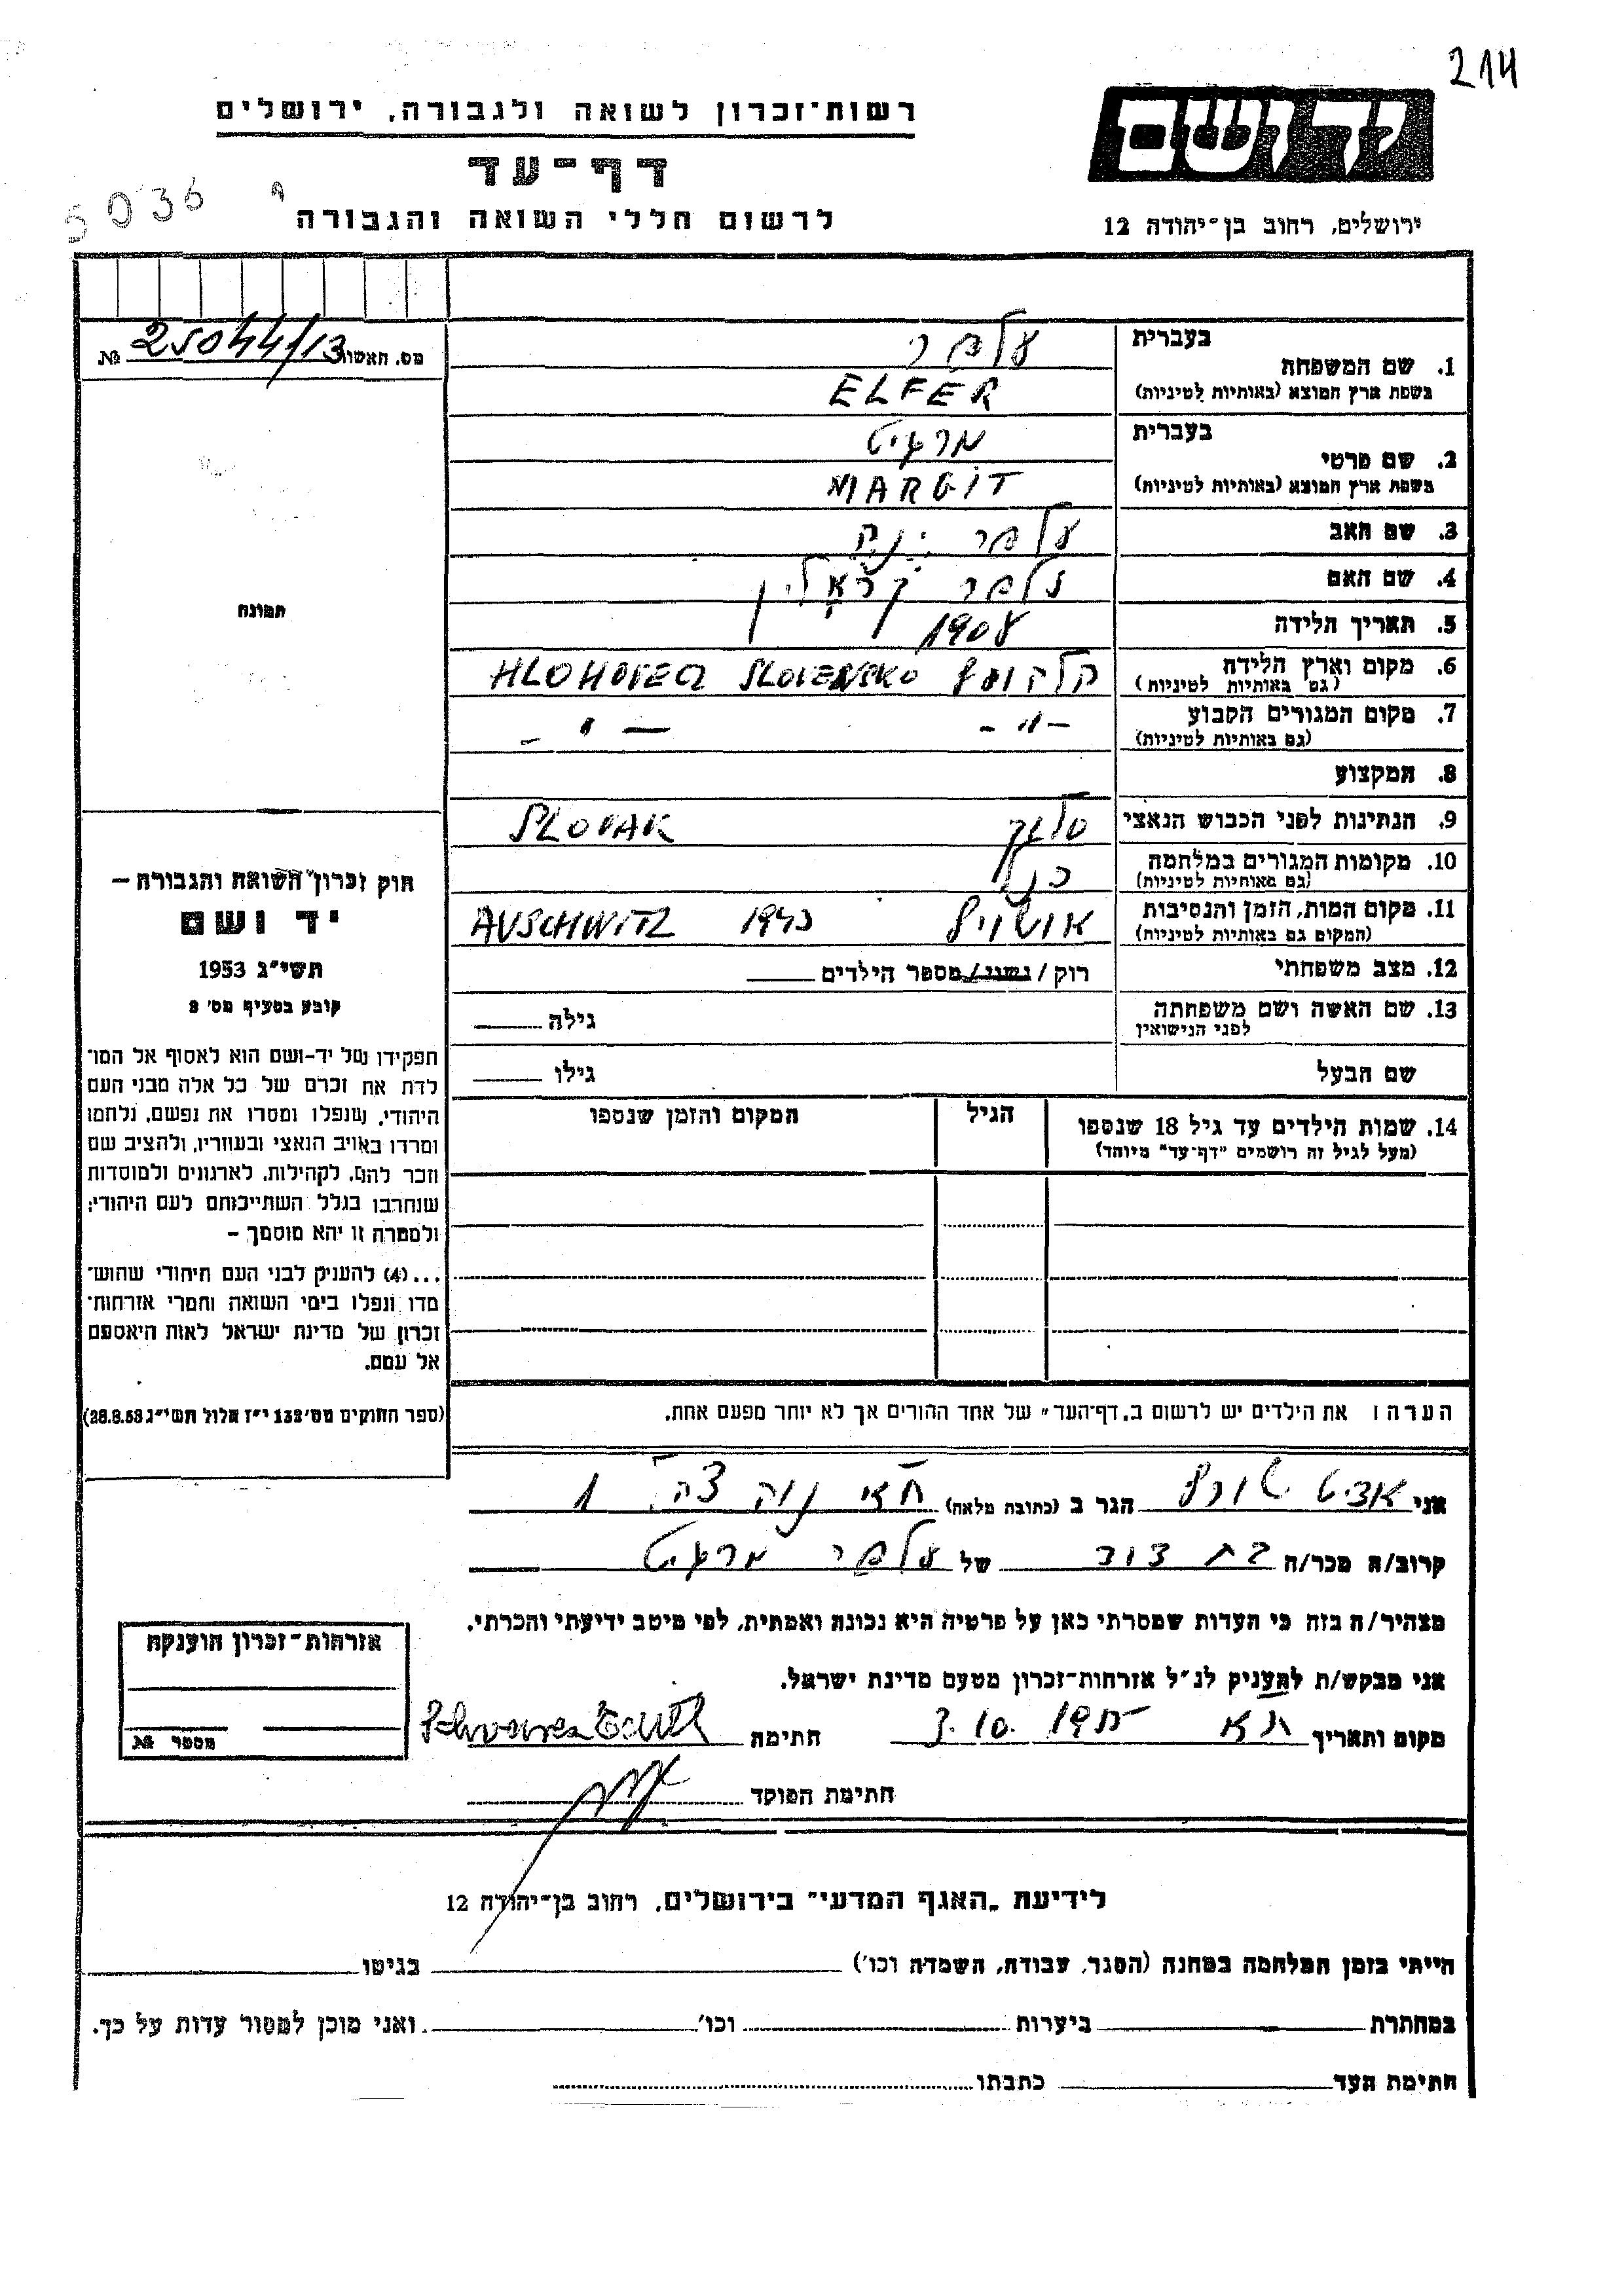 214
רשות־זכרון לשואה ולגבורה, ירושלים
יד ושם
דף־עד
5036
לרשום חללי השואה והגבורה
ירושלים, רחוב בן־יהודה 12
מס. האשור 25044/13 №
בעברית
1. שם המשפחה עלפר
בשפת ארץ המוצא (באותיות לטיניות) ELFER
בעברית
2. שם פרטי מרגיט
בשפת ארץ המוצא (באותיות לטיניות) MARGIT
3. שם האב עלפר
4. שם האם עלפר
5. תאריך הלידה 1908
6. מקום וארץ הלידה HLOHOVEC SLOVENSKO
(גם באותיות לטיניות)
7. מקום המגורים הקבוע -"- -"-
(גם באותיות לטיניות)
8. המקצוע
9. הנתינות לפני הכבוש הנאצי סלובק SLOVAK
10. מקומות המגורים במלחמה כנ"ל
(גם באותיות לטיניות)
11. מקום המות, הזמן והנסיבות אושויץ 1943 AUSCHWITZ
(המקום גם באותיות לטיניות)
12. מצב משפחתי רוק / נשוי / מספר הילדים
13. שם האשה ושם משפחתה גילה
לפני הנישואין
שם הבעל גילו
14. שמות הילדים עד גיל 18 שנספו הגיל המקום והזמן שנספו
(מעל לגיל זה רושמים "דף־עד" מיוחד)
תמונה
חוק זכרון השואה והגבורה —
יד ושם
תשי"ג 1953
קובע בסעיף מס' 2
תפקידו של יד-ושם הוא לאסוף אל המו־
לדת את זכרם של כל אלה מבני העם
היהודי, שנפלו ומסרו את נפשם, נלחמו
ומרדו באויב הנאצי ובעוזריו, ולהציב שם
וזכר להם, לקהילות, לארגונים ולמוסדות
שנחרבו בגלל השתייכותם לעם היהודי;
ולמטרה זו יהא מוסמך —
...(4) להעניק לבני העם היהודי שהוש־
מדו ונפלו בימי השואה והמרי אזרחות־
זכרון של מדינת ישראל לאות היאספם
אל עמם.
(ספר החוקים מס' 132 י"ז אלול תשי"ג 28.8.53)
הערה: את הילדים יש לרשום ב„דף־העד" של אחד ההורים אך לא יותר מפעם אחת.
אני אדיט שורץ הגר ב (כתובת מלאה) ת"א נוה 1
קרוב/ה מכר/ה בת דוד של עלפר מרגיט
מצהיר/ה בזה כי העדות שמסרתי כאן על פרטיה היא נכונה ואמתית, לפי מיטב ידיעתי והכרתי.
אני מבקש/ת להעניק לנ"ל אזרחות־זכרון מטעם מדינת ישראל.
מקום ותאריך ת"א 3.10. חתימה Schwarz Edith
חתימת הפוקד
אזרחות־זכרון הוענקה
מספר №
לידיעת „האגף המדעי" בירושלים, רחוב בן־יהודה 12
הייתי בזמן המלחמה במחנה (הסגר, עבודה, השמדה וכו') בגיטו
במחתרת ביערות וכו' ואני מוכן למסור עדות על כך.
חתימת העד כתבתו